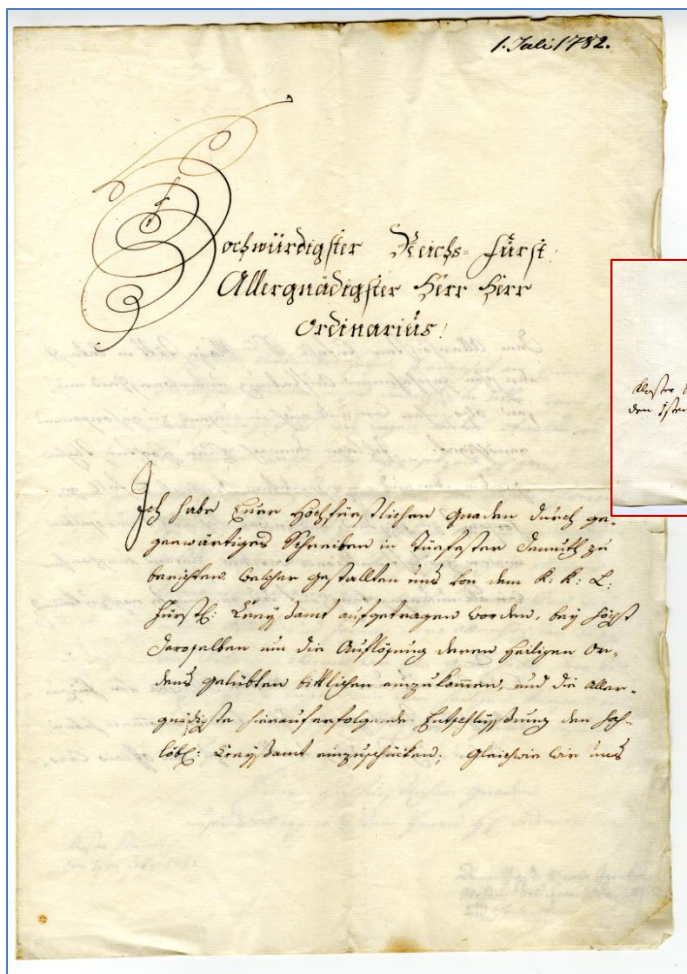 1. Juli 1782.
Hochwürdigster Reichs=Fürst
Allergnädigster Herr Herr
Ordinarius!
Ich habe Euer Hochfürstlichen Gnaden durch ge-
genwärtiges Schreiben in Tiefester Demuth zu
berichten, welcher gestallten uns von dem K: K: L:
Fürstl: Creyßamt aufgetragen worden, bey Höchst
Deroselben um die Auflösung deren Heiligen Or-
dens gelübten bittlichen einzukommen, und die Aller-
gnädigste hierauf erfolgende Entschlüßung den Hoch-
löbl: Creyßamt einzuschicken; Gleichwie wir uns
Kloster
den